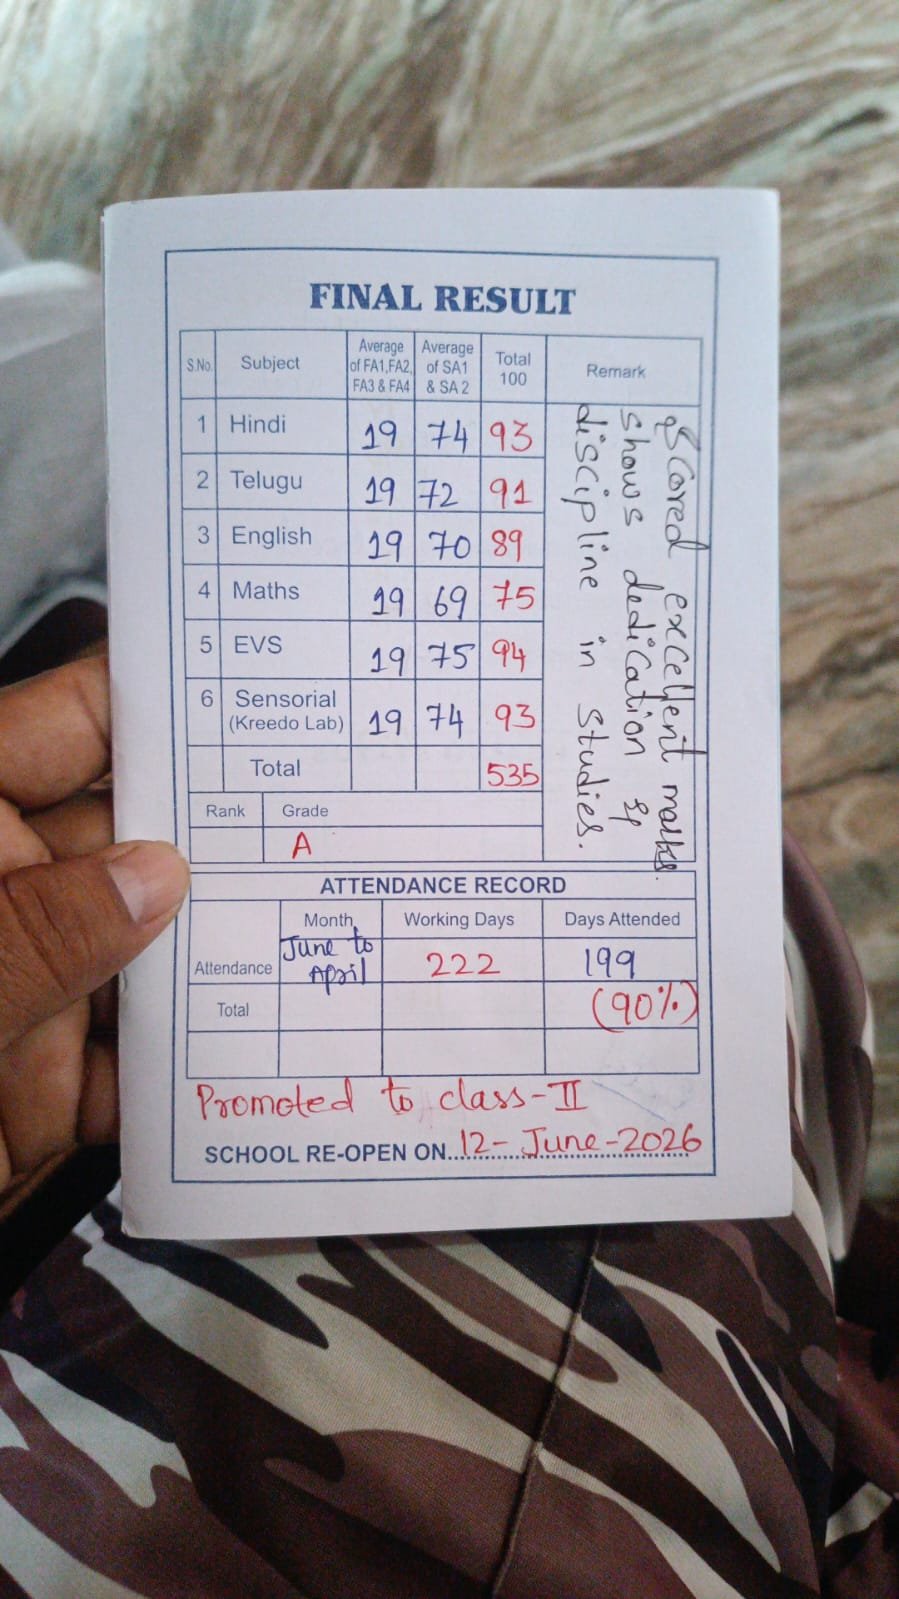 FINAL RESULT
S.No. Subject Average of FA1,FA2, FA3 & FA4 Average of SA1 & SA 2 Total 100 Remark
1 Hindi 19 74 93
2 Telugu 19 72 91
3 English 19 70 89
4 Maths 19 69 75
5 EVS 19 75 94
6 Sensorial (Kreedo Lab) 19 74 93
Total 535
Scored excellent marks.
shows dedication &
discipline in studies.
Rank Grade
A
ATTENDANCE RECORD
Month Working Days Days Attended
Attendance June to April 222 199
Total (90%)
Promoted to class-II
SCHOOL RE-OPEN ON 12-June-2026